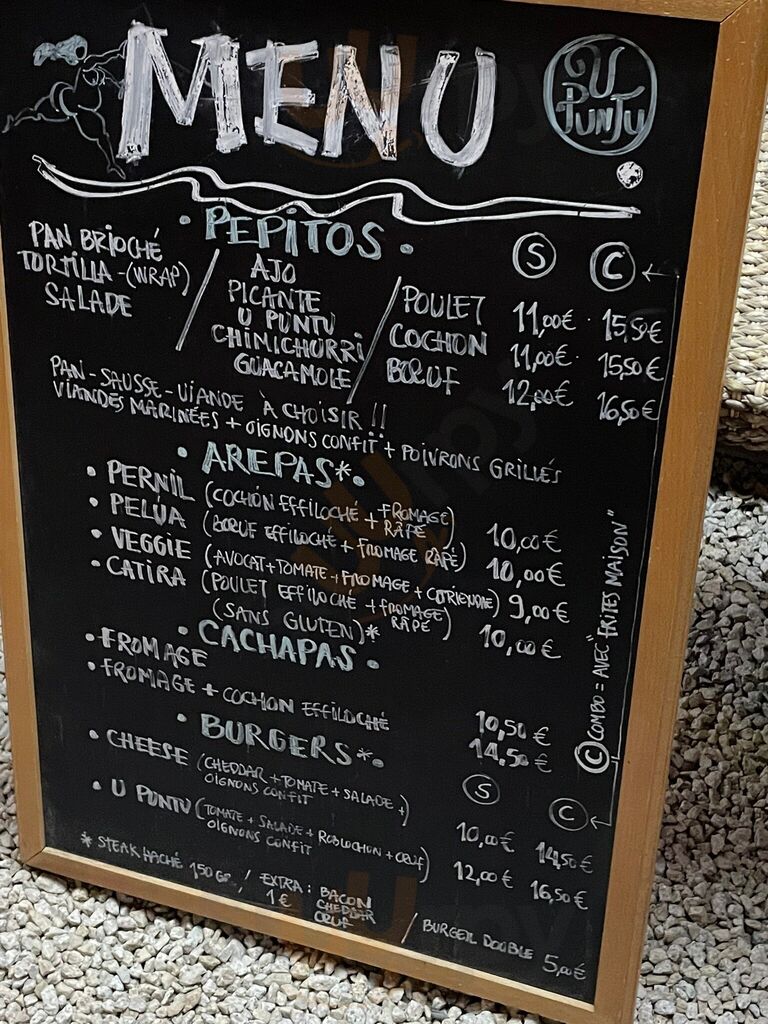 MENU
U PUNTU
• PEPITOS •
S C
PAN BRIOCHÉ
TORTILLA - (WRAP)
SALADE
/ AJO
PICANTE
U PUNTU
CHIMICHURRI
GUACAMOLE
/ POULET 11,00€ 15,50€
COCHON 11,00€ 15,50€
BŒUF 12,00€ 16,50€
PAN - SAUSSE - VIANDE À CHOISIR !!
VIANDES MARINÉES + OIGNONS CONFIT + POIVRONS GRILLÉS
• AREPAS* •
• PERNIL (COCHON EFFILOCHÉ + FROMAGE RÂPÉ) 10,00€
• PELÚA (BŒUF EFFILOCHÉ + FROMAGE RÂPÉ) 10,00€
• VEGGIE (AVOCAT + TOMATE + FROMAGE + CORIENDRE) 9,00€
• CATIRA (POULET EFFILOCHÉ + FROMAGE RÂPÉ) 10,00€
(SANS GLUTEN)*
• CACHAPAS •
• FROMAGE 10,50€
• FROMAGE + COCHON EFFILOCHÉ 14,50€
• BURGERS* •
S C
• CHEESE (CHEDDAR + TOMATE + SALADE + OIGNONS CONFIT) 10,00€ 14,50€
• U PUNTU (TOMATE + SALADE + ROBLOCHON + ŒUF OIGNONS CONFIT) 12,00€ 16,50€
* STEAK HACHÉ 150 Gr / EXTRA : BACON
1€ CHEDDAR
ŒUF
/ BURGER DOUBLE 5,00€
C COMBO = AVEC "FRITES MAISON"